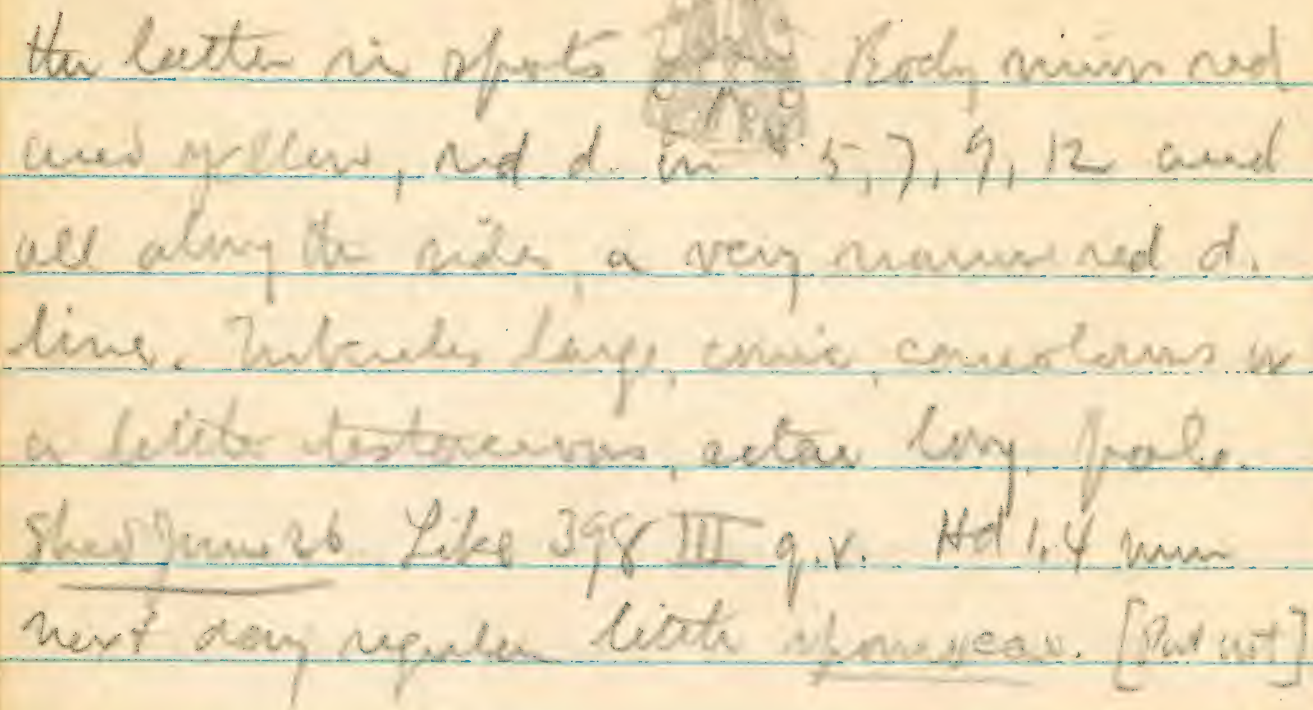 the latter in spots Body minus red
and yellow, red d. in 5, 7, 9, 12 and
all along the sides, a very narrow red d.
line. Tubercles large, conic, concolorous or
a little testaceous, setae long, pale.
Shed June 26 Like 398 III q.v. Hd 1.4 mm
next day regular little [Put out]